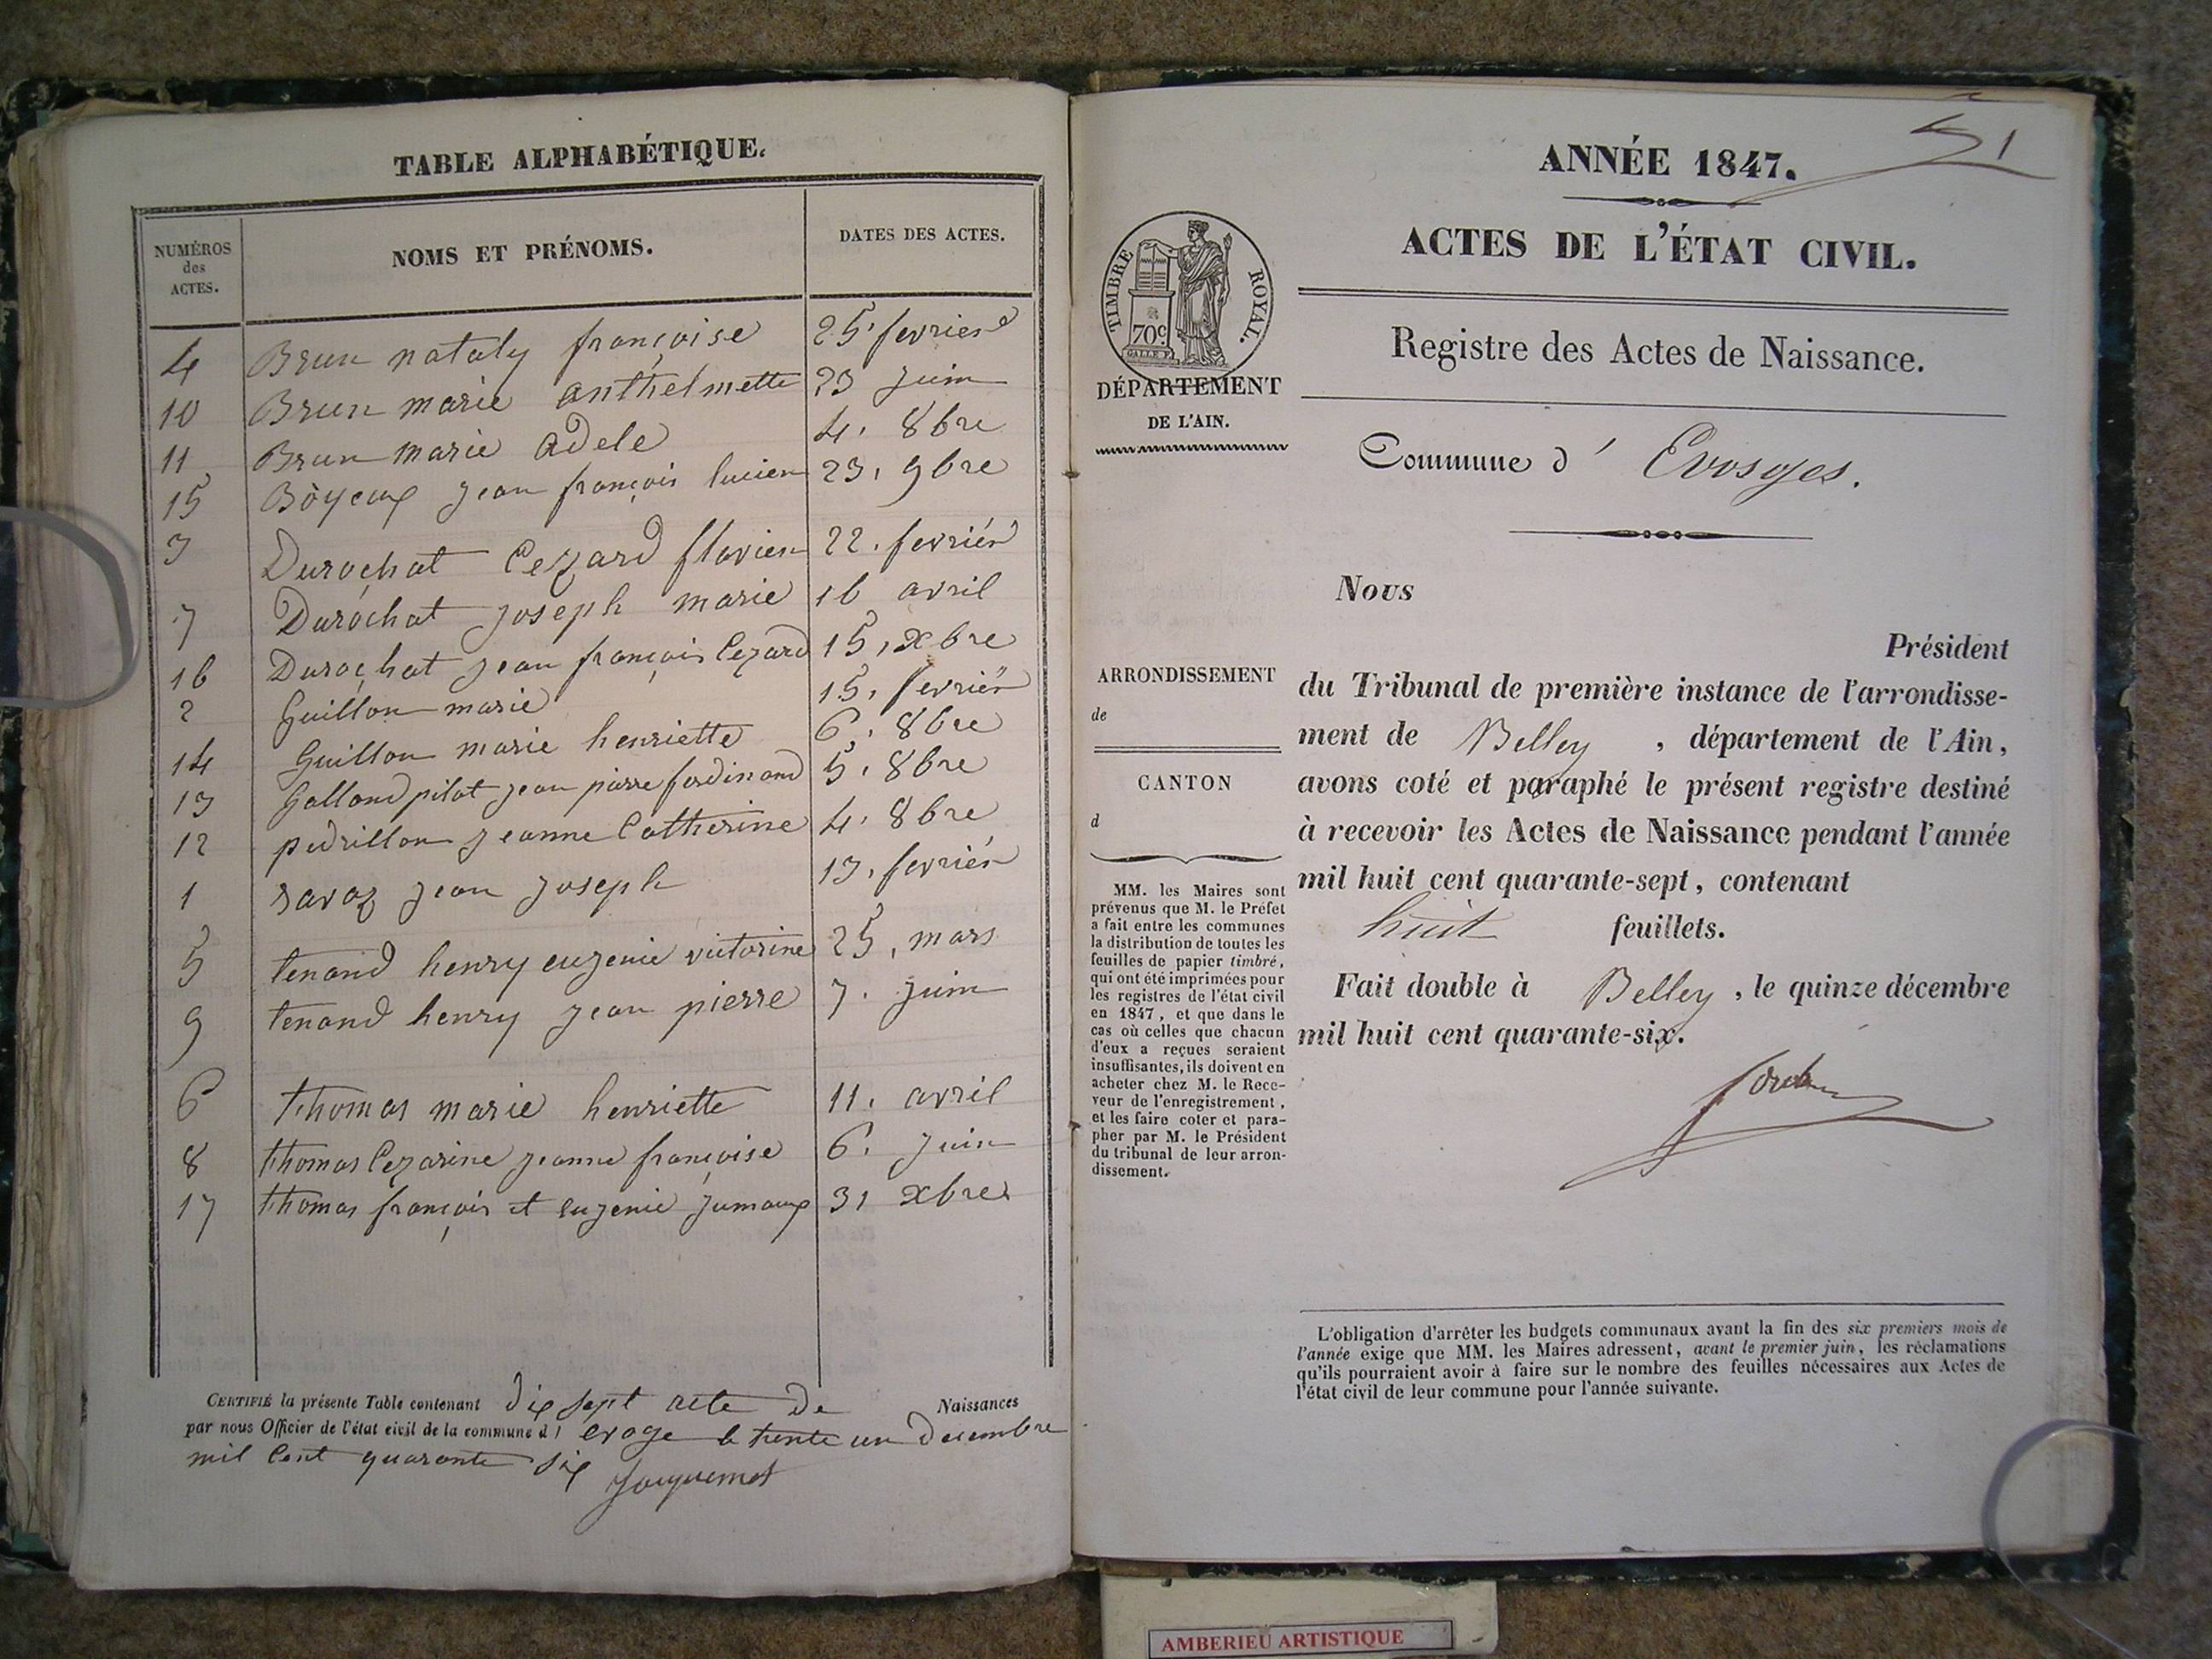 TABLE ALPHABÉTIQUE.
NUMÉROS
des
ACTES.
NOMS ET PRÉNOMS.
DATES DES ACTES.
4 Brun nataly françoise 25. fevrier
10 Brun marie anthelmette 23 juin
11 Brun marie adele 4. 8bre
15 Böyeux jean françois lucien 23. 9bre
3 Durochat Cezard flavien 22. fevrier
7 Durochat joseph marie 16 avril
16 Durochat jean françois Cezard 15. xbre
2 Guillon marie 15. fevrier
14 Guillon marie henriette 6. 8bre
13 Galland pilat jean pierre ferdinand 5. 8bre
12 pedrillon jeanne Catherine 4. 8bre
1 savoz jean joseph 13. fevrier
5 tenand henry eugenie victorine 25. mars
9 tenand henry jean pierre 7. juin
6 thomas marie henriette 11. avril
8 thomas Cezarine jeanne françoise 6. juin
17 thomas françois et eugenie jumaux 31 xbre
CERTIFIÉ la présente Table contenant dix sept acte de Naissances
par nous Officier de l'état civil de la commune d' evoge le trente un decembre
mil Cent quarante six
Jacquemet
51
ANNÉE 1847.
ACTES DE L'ÉTAT CIVIL.
TIMBRE ROYAL.
70c
GALLE F.
DÉPARTEMENT
DE L'AIN.
Registre des Actes de Naissance.
Commune d' Evosges.
Nous
Président
du Tribunal de première instance de l'arrondisse-
ment de Belley, département de l'Ain,
avons coté et paraphé le présent registre destiné
à recevoir les Actes de Naissance pendant l'année
mil huit cent quarante-sept, contenant
huit feuillets.
Fait double à Belley, le quinze décembre
mil huit cent quarante-six.
ARRONDISSEMENT
de
CANTON
d
MM. les Maires sont
prévenus que M. le Préfet
a fait entre les communes
la distribution de toutes les
feuilles de papier timbré,
qui ont été imprimées pour
les registres de l'état civil
en 1847, et que dans le
cas où celles que chacun
d'eux a reçues seraient
insuffisantes, ils doivent en
acheter chez M. le Rece-
veur de l'enregistrement,
et les faire coter et para-
pher par M. le Président
du tribunal de leur arron-
dissement.
L'obligation d'arrêter les budgets communaux avant la fin des six premiers mois de
l'année exige que MM. les Maires adressent, avant le premier juin, les réclamations
qu'ils pourraient avoir à faire sur le nombre des feuilles nécessaires aux Actes de
l'état civil de leur commune pour l'année suivante.
AMBERIEU ARTISTIQUE